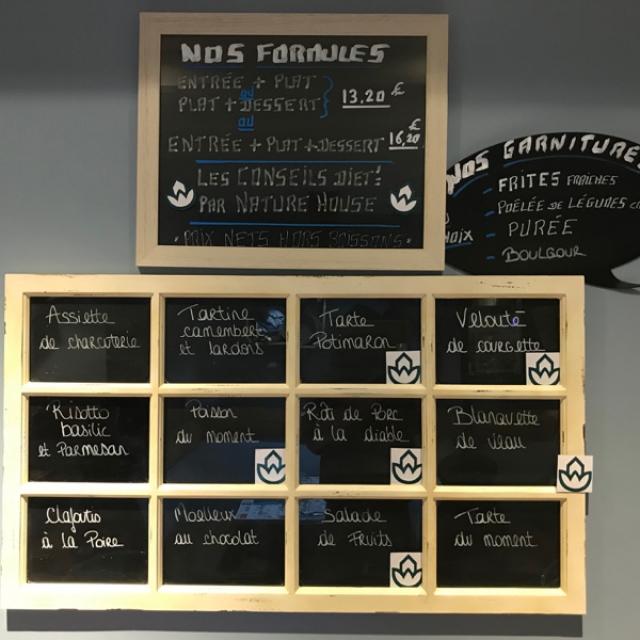 NOS FORMULES
ENTRÉE + PLAT
ou
PLAT + DESSERT
13,20 €
ou
ENTRÉE + PLAT + DESSERT 16,20 €
LES CONSEILS DIET!
PAR NATURE HOUSE
• PRIX NETS HORS BOISSONS •
NOS GARNITURES
- FRITES FRAÎCHES
- POÊLÉE DE LÉGUMES
- PURÉE
- BOULGOUR
Assiette
de charcuterie
Tartine
camembert
et lardons
Tarte
Potimaron
Velouté
de courgette
Risotto
basilic
et Parmesan
Poisson
du moment
Rôti de Porc
à la diable
Blanquette
de veau
Clafoutis
à la Poire
Moelleux
au chocolat
Salade
de Fruits
Tarte
du moment